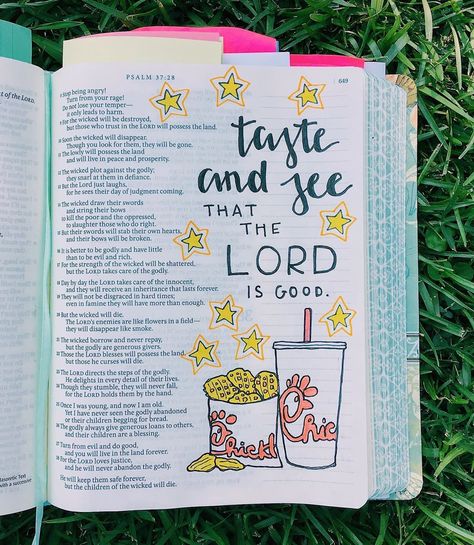 PSALM 37:28
649
8 Stop being angry!
Turn from your rage!
Do not lose your temper—
it only leads to harm.
9 For the wicked will be destroyed,
but those who trust in the LORD will possess the land.
10 Soon the wicked will disappear.
Though you look for them, they will be gone.
11 The lowly will possess the land
and will live in peace and prosperity.
12 The wicked plot against the godly;
they snarl at them in defiance.
13 But the Lord just laughs,
for he sees their day of judgment coming.
14 The wicked draw their swords
and string their bows
to kill the poor and the oppressed,
to slaughter those who do right.
15 But their swords will stab their own hearts,
and their bows will be broken.
16 It is better to be godly and have little
than to be evil and rich.
17 For the strength of the wicked will be shattered,
but the LORD takes care of the godly.
18 Day by day the LORD takes care of the innocent,
and they will receive an inheritance that lasts forever.
19 They will not be disgraced in hard times;
even in famine they will have more than enough.
20 But the wicked will die.
The LORD's enemies are like flowers in a field—
they will disappear like smoke.
21 The wicked borrow and never repay,
but the godly are generous givers.
22 Those the LORD blesses will possess the land,
but those he curses will die.
23 The LORD directs the steps of the godly.
He delights in every detail of their lives.
24 Though they stumble, they will never fall,
for the LORD holds them by the hand.
25 Once I was young, and now I am old.
Yet I have never seen the godly abandoned
or their children begging for bread.
26 The godly always give generous loans to others,
and their children are a blessing.
27 Turn from evil and do good,
and you will live in the land forever.
28 For the LORD loves justice,
and he will never abandon the godly.
He will keep them safe forever,
but the children of the wicked will die.
taste
and see
THAT
THE
LORD
IS GOOD.
Chickf
Chic